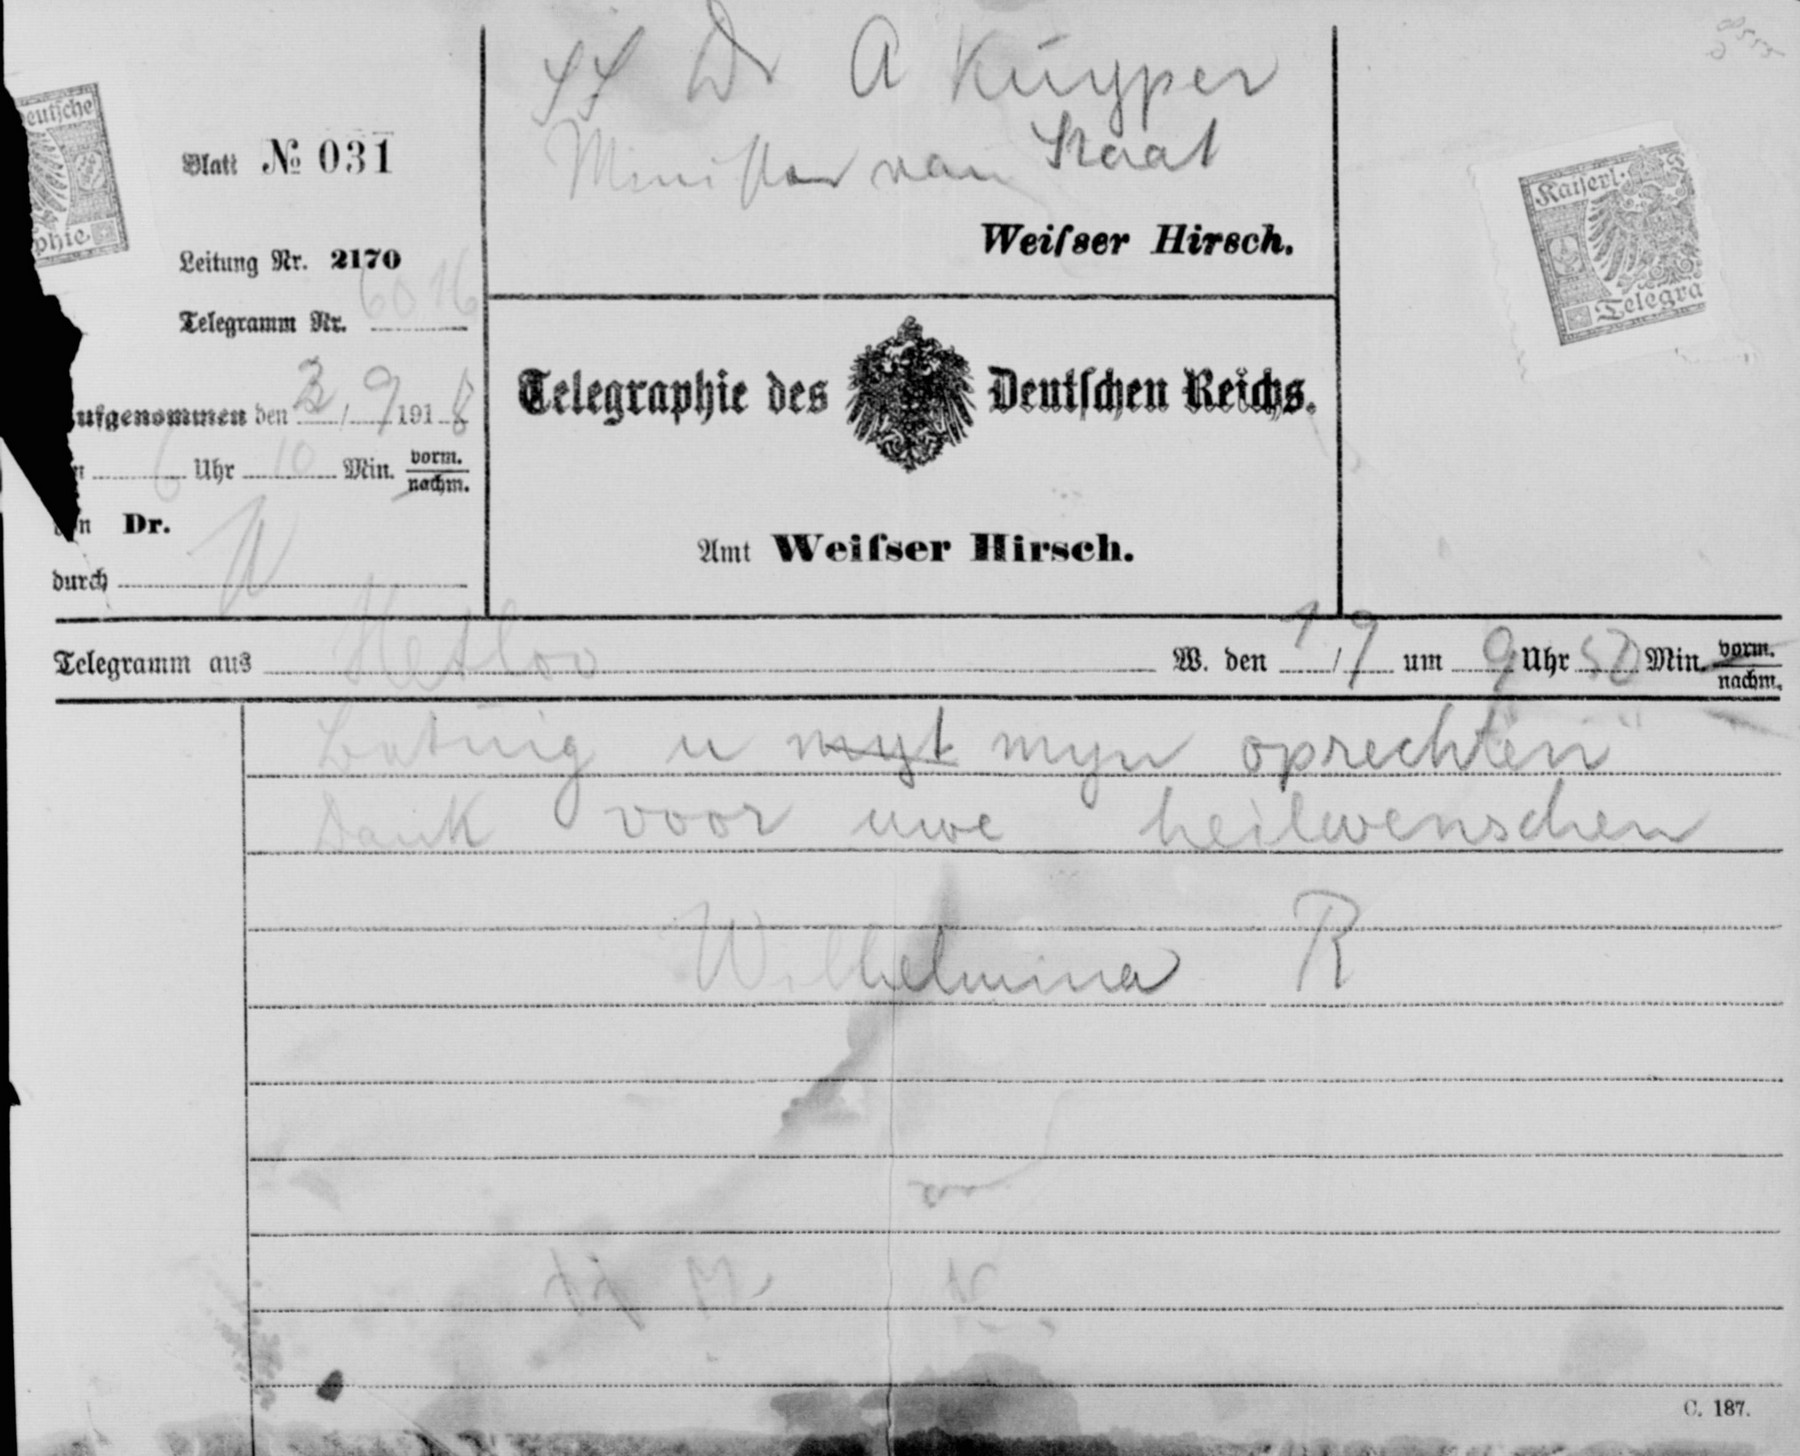 SS Dr A Kuyper
Minister van Staat
Weiſser Hirsch.
eutsche
phie
Blatt № 031
Leitung Nr. 2170
Telegramm Nr. 6016
ufgenommen den 3/9 1918
6 Uhr 10 Min. vorm.
nachm.
Dr.
durch W
Telegraphie des Deutschen Reichs.
Amt Weiſser Hirsch.
Kaiserl.
Telegra
Telegramm aus Hetloo W. den 1/9 um 9 Uhr 50 Min. vorm.
nachm.
Betuig u myt myn oprechten
Dank voor uwe heilwenschen
Wilhelmina R
C. 187.